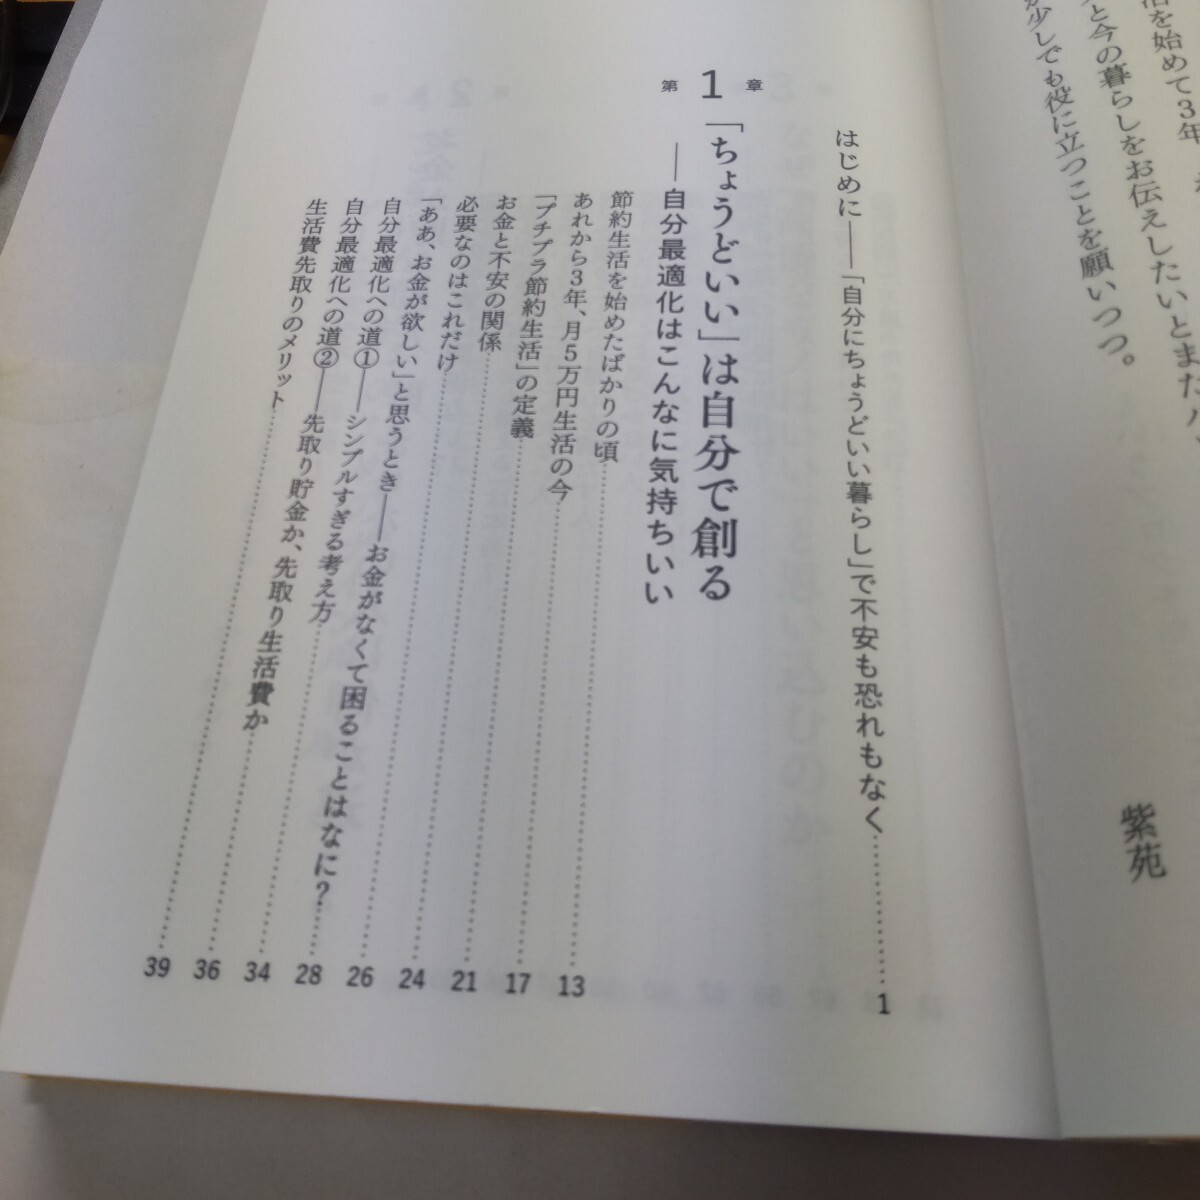 活を始めて3年、
と今の暮らしをお伝えしたいとまた
少しでも役に立つことを願いつつ。
紫苑
はじめに――「自分にちょうどいい暮らし」で不安も恐れもなく………1
第1章
「ちょうどいい」は自分で創る
――自分最適化はこんなに気持ちいい
節約生活を始めたばかりの頃………13
あれから3年、月5万円生活の今………17
「プチプラ節約生活」の定義………21
お金と不安の関係………24
必要なのはこれだけ………26
「ああ、お金が欲しい」と思うとき――お金がなくて困ることはなに？………28
自分最適化への道①――シンプルすぎる考え方………34
自分最適化への道②――先取り貯金か、先取り生活費か………36
生活費先取りのメリット………39